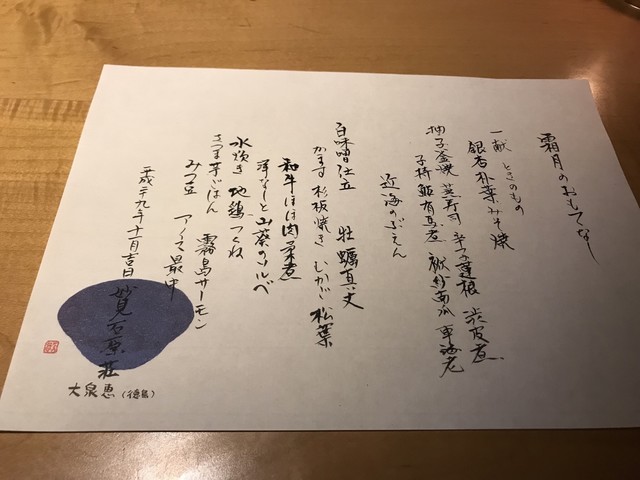 霜月のおもてなし
一献 ときのもの
銀杏朴葉みそ焼
柚子釜焼 芝寿司 辛子蓮根 渋皮煮
子持鮎有馬煮 袱紗南瓜 車海老
近海のぶえん
白味噌仕立 牡蠣真丈
かます杉板焼き むかご松葉
和牛ほほ肉柔煮
洋なしと山葵のソルベ
水炊き 地鶏つくね
さつま芋ごはん 霧島サーモン
みつ豆 アイス最中
平成二九年十一月吉日
妙見石原荘
大泉恵（徳島）